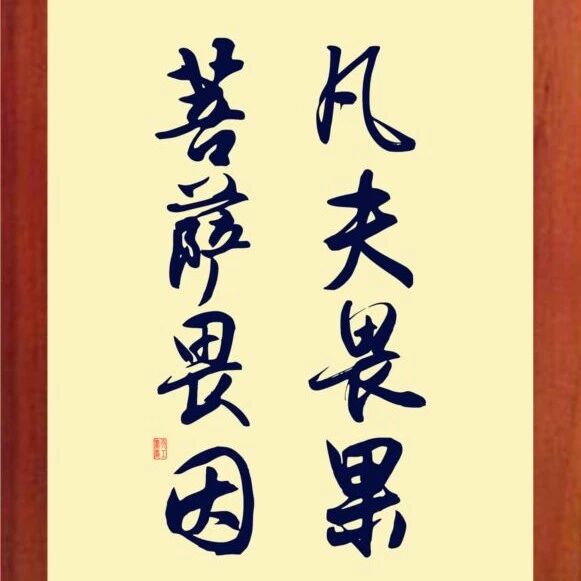 凡夫畏果
菩萨畏因